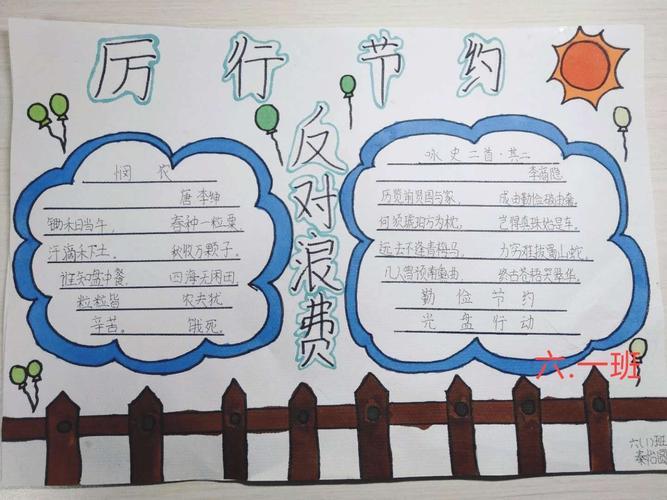 厉行节约
反对浪费
悯 农
唐 李绅
锄禾日当午， 春种一粒粟，
汗滴禾下土。 秋收万颗子。
谁知盘中餐， 四海无闲田，
粒粒皆 农夫犹
辛苦。 饿死。
咏史二首·其二
李商隐
历览前贤国与家， 成由勤俭破由奢。
何须琥珀方为枕， 岂得真珠始是车。
远去不逢青海马， 力穷难拔蜀山蛇。
几人曾预南薰曲， 终古苍梧哭翠华。
勤 俭 节 约
光 盘 行 动
六.一班
六(1)班
秦怡圆